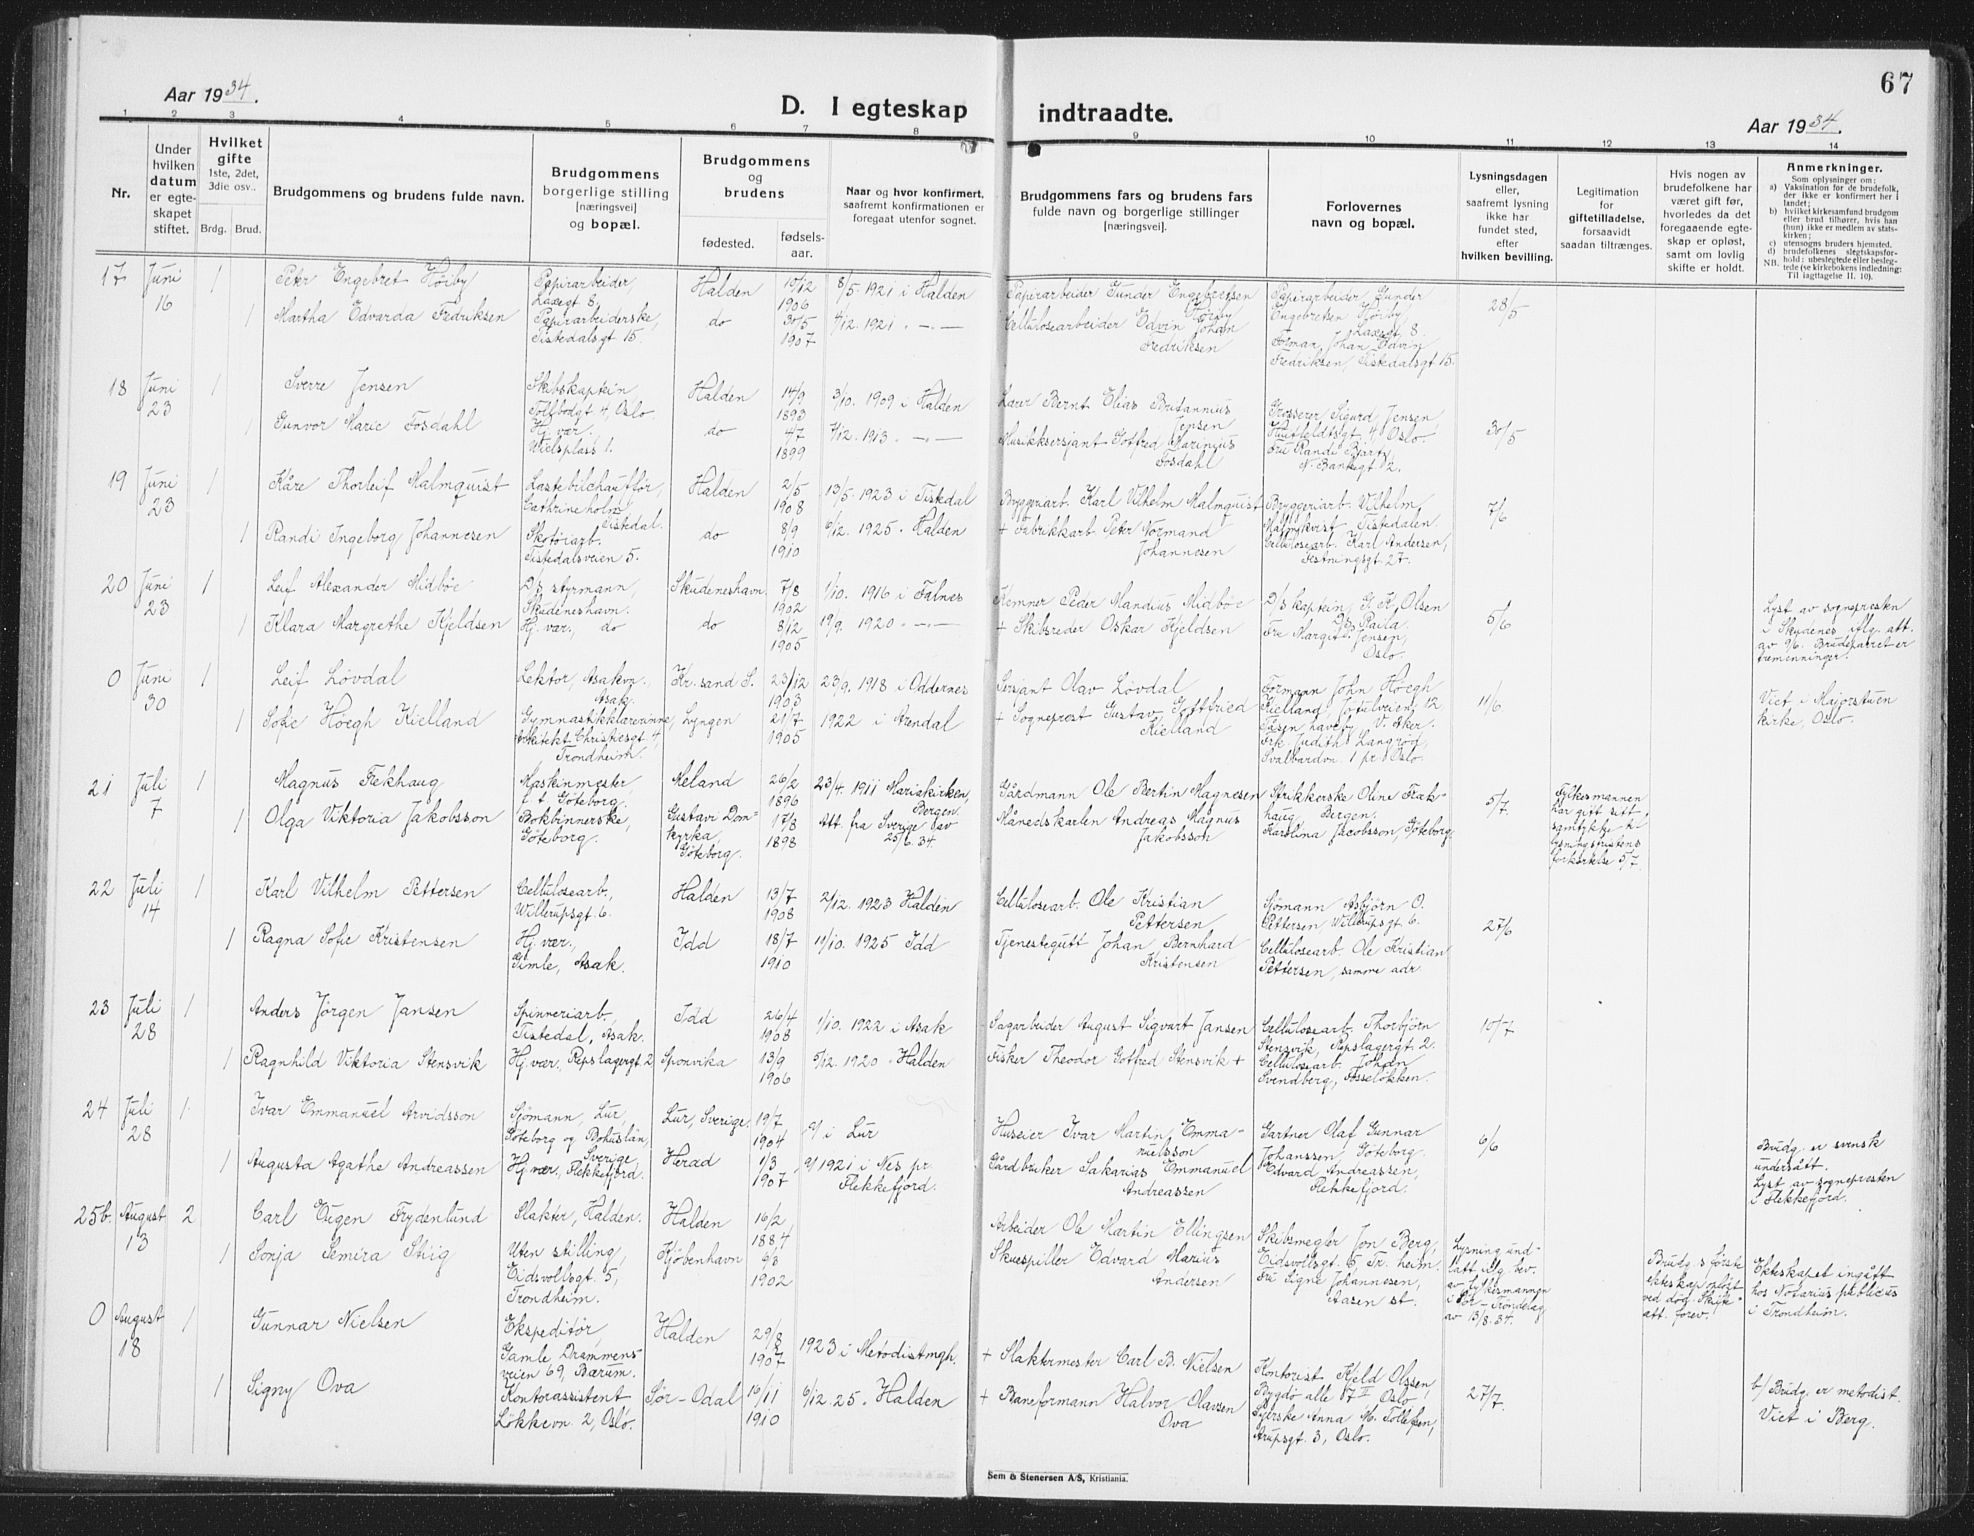 67
Aar 1934.
D. I egteskap indtraadte.
Aar 1934.
1 2 3 4 5 6 7 8 9 10 11 12 13 14
Nr.
Under hvilken datum er egteskapet stiftet.
Hvilket gifte
1ste, 2det, 3die osv..
Brdg. Brud.
Brudgommens og brudens fulde navn.
Brudgommens borgerlige stilling [næringsvei] og bopæl.
Brudgommens og brudens
fødested. fødselsaar.
Naar og hvor konfirmert, saafremt konfirmationen er foregaat utenfor sognet.
Brudgommens fars og brudens fars fulde navn og borgerlige stillinger [næringsvei].
Forlovernes navn og bopæl.
Lysningsdagen eller, saafremt lysning ikke har fundet sted, efter hvilken bevilling.
Legitimation for giftetilladelse, forsaavidt saadan tiltrænges.
Hvis nogen av brudefolkene har været gift før, hvorledes da det foregaaende egteskap er opløst, samt om lovlig skifte er holdt.
Anmerkninger.
Som oplysninger om:
a) Vaksination før de brudefolk, der ikke er konfirmert her i landet;
b) hvilket kirkesamfund brudgom eller brud tilhører, hvis han (hun) ikke er medlem av statskirken;
c) utensogns bruders hjemsted.
d) brudefolkenes slegtskapsforhold: ubeslegtede eller beslegtede (se kirkebokens indledning: Til iagttagelse II. 10).
NB.
17 Juni 16 1 Peter Engebret Höiby Papirarbeider, Laxegt 8, Halden 15/12 1906 8/5 1921 i Halden Papirarbeider Gunder Engebretsen Höiby Papirarbeider Gunder Engebretsen Höiby, Laxegt 8. 28/5
1 Martha Edvarda Fredriksen Papirarbeiderske, Tistedalsgt 15. do 30/5 1907 4/12. 1921 " — " — Cellulosearbeider Edvin Johan Fredriksen Forman Johan Edvin Fredriksen, Tistedalsgt 15.
18 Juni 23 1 Sverre Jensen Skibskaptein Tollbodgt 4, Oslo. Halden 14/9 1893 3/10. 1909 i Halden Lærer Bernt Elias Britannius Jensen Grosserer Sigurd Jensen, Huitfeldtsgt 4, Oslo 30/5
1 Gunvor Marie Fosdahl Hj. vær. Wielsplass 1. do 4/7 1899 7/12. 1913 " — " — Musikksersjant Gotfred Marinius Fosdahl Fru Randi Bjarty, N. Bankegt 2.
19 Juni 23 1 Kåre Thorleif Malmquist Lastebilchauffør, Cathrineholm, Tistedal. Halden 2/5 1908 13/5. 1923 i Tistedal Byggeriarb. Karl Vilhelm Malmquist Bryggeriarb. Vilhelm Malmkvist Tistedalen. 7/6
1 Randi Ingeborg Johannesen Skotöiarb. Tistedalsveien 5. do 8/9 1910 6/12. 1925 " Halden + Fabrikkarb Peter Normand Johannesen Cellulosearb. Karl Andersen, Festningsgt. 27.
20 Juni 23 1 Leif Alexander Midböe D/s styrmann, Skudeneshavn. Skudeneshavn. 7/8 1902 1/10. 1916 i Falnes Kemner Peder Mandius Midböe D/s kaptein, G. K. Olsen D/s Raila. 5/6 Lyst av sognepresten i Skudenes iflg. att. av 9/6. Brudeparret er fremenninger.
1 Klara Margrethe Kjeldsen Hj. vær., do do 8/12 1905 19/9. 1920 " — " — + Skibsreder Oskar Kjeldsen Fru Margit Jensen, Oslo.
0 Juni 30 1 Leif Lövdal Lektor, Asakvn., Asak. Kr. sand S. 23/12 1903 23/9. 1918 i Oddernes Sersjant Olav Lövdal Formann John Höegh Kielland, Jotulveien 12 Tåsen haveby, V. Aker. 11/6 Viet i Majorstuen kirke, Oslo.
1 Sofie Höegh Kielland Gymnastikklærerinne, Arkitekt Christiesgt 4, Trondheim. Lyngen 21/7 1905 1922 i Arendal + Sogneprest Gustav Gottfried Kielland Frk Judith Langröd, Svalbardvn. 1 pr. Oslo.
21 Juli 7 1 Magnus Frekhaug Maskinmester, f. t. Göteborg. Meland 26/2 1896 23/4. 1911 Mariakirken, Bergen. Gårdmann Ole Bertin Magnesen Strikkerske Oline Frækhaug, Bergen. 5/7 Fylkesmannen har gitt sitt samtykke til lysningsfristens forkortelse 5/7.
1 Olga Viktoria Jakobsson Bokbinnerske, Göteborg. Gustavi Domkyrka, Göteborg. 17/8 1898 Att. fra Sverige av 25/6. 34. Månedskarlen Andreas Magnus Jakobsson Karolina Jacobsson, Göteborg
22 Juli 14 1 Karl Vilhelm Pettersen Cellulosearb, Willerupsgt. 6. Halden 13/7 1908 2/12. 1923 Halden Cellulosearb. Ole Kristian Pettersen Sjömann Asbjörn O. Pettersen Willerupsgt 6. 27/6
1 Ragna Sofie Kristensen Hj. vær., Gimle, Asak. Idd 18/7 1910 11/10. 1925 Idd Tjenestegutt Johan Bernhard Kristensen Cellulosearb. Ole Kristian Pettersen, samme adr
23 Juli 28 1 Anders Jörgen Jansen Spinneriarb, Tistedal, Asak. Idd 26/4 1908 1/10. 1922 i Asak Sagarbeider August Sigvart Jansen Cellulosearb. Thorbjörn Stensvik, Repslagergt 2. 10/7
1 Ragnhild Viktoria Stensvik Hj. vær, Repslagergt. 2 Sponvika 13/9 1906 5/12. 1920 " Halden Fisker Theodor Gotfred Stensvik + Cellulosearb. Johan Svendberg, Fosselökken.
24 Juli 28 1 Ivar Emmanuel Arvidsson Sjömann, Lur, Göteborg og Bohuslän, Sverige Lur, Sverige. 19/7 1904 i Lur Huseier Ivar Martin Emmanuelsson Gartner Olaf Gunnar Johanssen, Göteborg. 6/6 Brudg. er svensk undersått. Lyst av sognepresten i Flekkefjord.
1 Augusta Agathe Andreassen Hj. vær, Flekkefjord. Herad 1/3 1907 1921 i Nes pr. Flekkefjord. Gårdbruker Sakarias Emmanuel Andreassen Edvard Andreassen, Flekkefjord.
25b. August 13 2 Carl Eugen Frydenlund Slakter, Halden. Halden 16/2 1884 Arbeider Ole Martin Ellingsen Skibsmegler Jon Berg, Eidsvollsgt. 5, Tr. heim. Lysning undlatt iflg. bev. av Fylkesmannen i Sör-Tröndelag av 13/8. 34. Brudg.s første ekteskap opløst ved død. Skifteatt. forev. Ekteskapet ingått hos Notarius publicus i Trondheim.
1 Sonja Semira Stiig Uten stilling, Eidsvollsgt. 5, Trondheim. Kjöbenhavn 6/3 1902 Skuespiller Edvard Marius Andersen Fru Signe Johannesen, Aasen st.
0 August 18 1 Gunnar Nielsen Ekspeditör, Gamle Drammensveien 69, Bærum. Halden 29/8 1907 1923 i Metodistmgh. + Slaktermester Carl B. Nielsen Kontorist Kjeld Olssen, Bygdö alle 17 II Oslo 27/7. b/ Brudg. er metodist. Viet i Berg.
1 Signy Ova Kontorassistent Lökkevn. 2, Oslo. Sör-Odal 16/11 1910 6/12. 25. Halden + Baneformann Halvor Olavsen Ova Syerske Anna M. Tollefsen, Arupsgt. 3, Oslo.
Sem & Stenersen A/S, Kristiania.